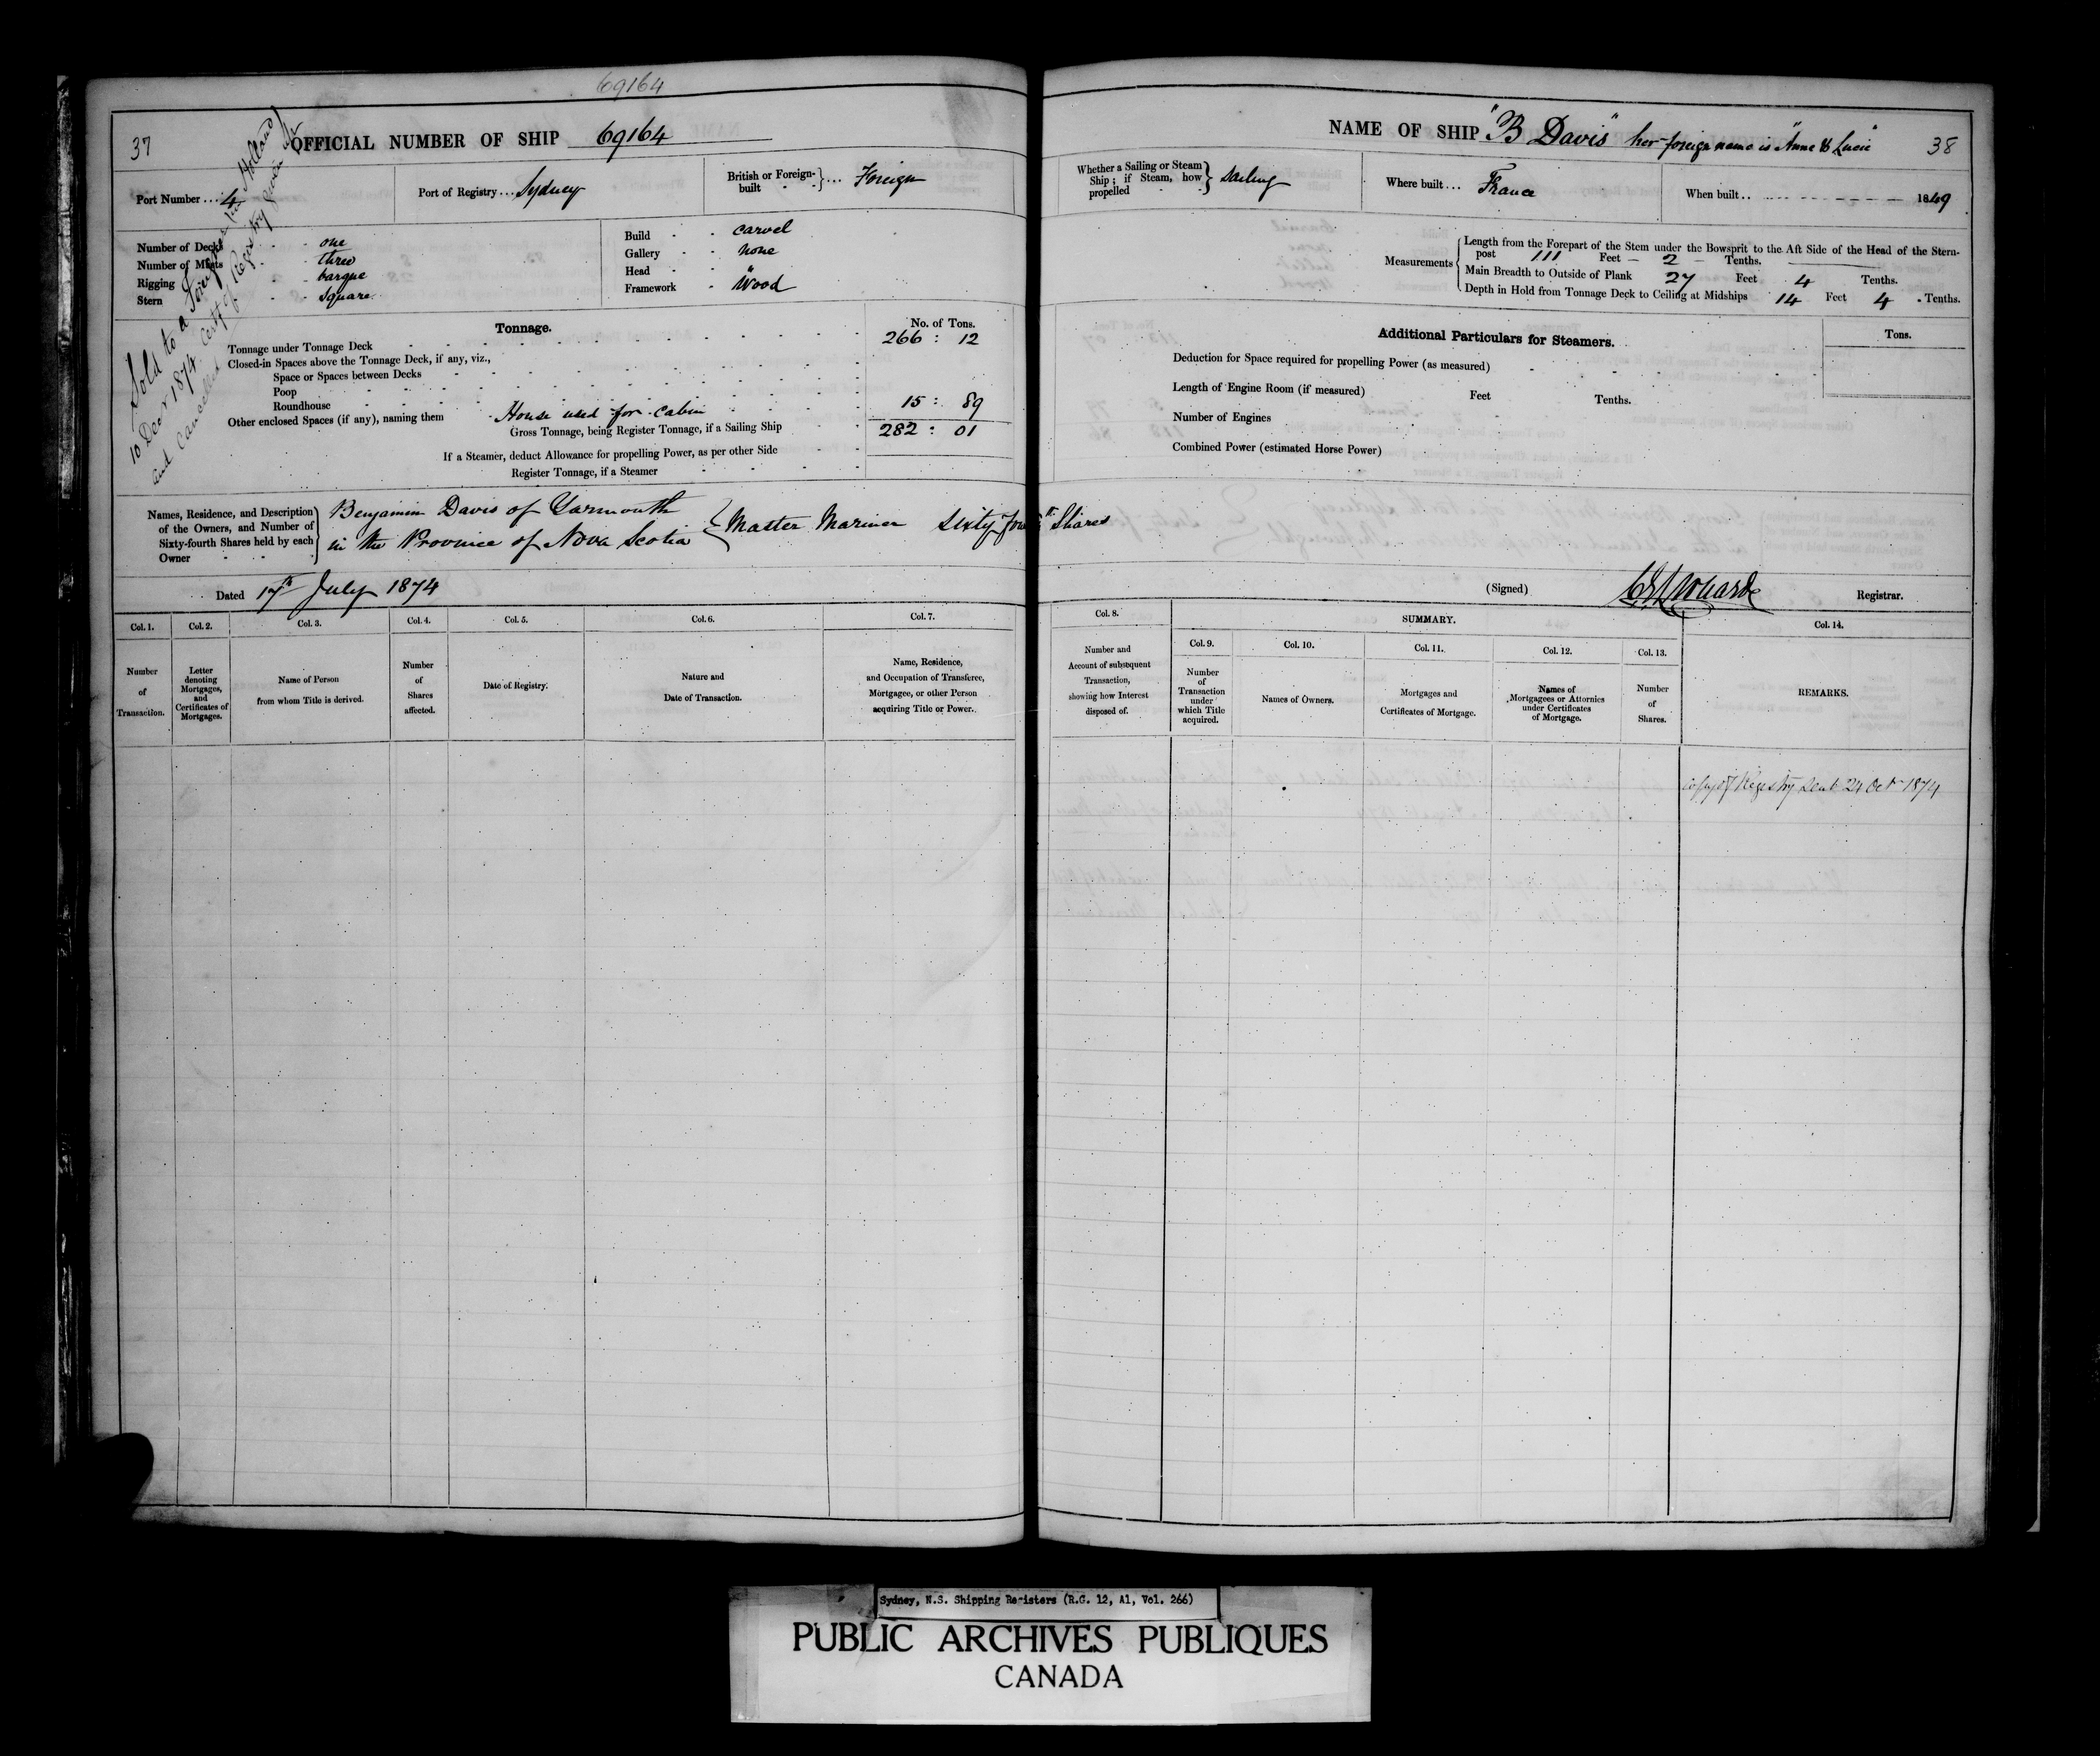 69164
37
OFFICIAL NUMBER OF SHIP 69164
Port Number ... 4
Port of Registry ... Sydney
British or Foreign-built } ... Foreign
Number of Decks - - one
Number of Masts - - three
Rigging - - barque
Stern - - Square
Build - - carvel
Gallery - - none
Head - - "
Framework - Wood
Sold to a Foreigner (in Holland)
10 Decr 1874. Certf of Registry given up
and Cancelled
Tonnage.
No. of Tons.
Tonnage under Tonnage Deck 266 : 12
Closed-in Spaces above the Tonnage Deck, if any, viz.,
Space or Spaces between Decks
Poop
Roundhouse
Other enclosed Spaces (if any), naming them House used for cabin 15 : 89
Gross Tonnage, being Register Tonnage, if a Sailing Ship 282 : 01
If a Steamer, deduct Allowance for propelling Power, as per other Side
Register Tonnage, if a Steamer
Names, Residence, and Description of the Owners, and Number of Sixty-fourth Shares held by each Owner
Benjamin Davis of Yarmouth
in the Province of Nova Scotia } Master Mariner Sixty four Shares
Dated 17th July 1874
Col. 1. Col. 2. Col. 3. Col. 4. Col. 5. Col. 6. Col. 7.
Number of Transaction.
Letter denoting Mortgages, and Certificates of Mortgages.
Name of Person from whom Title is derived.
Number of Shares affected.
Date of Registry.
Nature and Date of Transaction.
Name, Residence, and Occupation of Transferee, Mortgagee, or other Person acquiring Title or Power.
NAME OF SHIP "B Davis" her foreign name is "Anne & Lucie"
38
Whether a Sailing or Steam Ship; if Steam, how propelled } Sailing
Where built ... France
When built .. 1849
Measurements
Length from the Forepart of the Stem under the Bowsprit to the Aft Side of the Head of the Stern-
post 111 Feet — 2 — Tenths.
Main Breadth to Outside of Plank 27 Feet 4 Tenths.
Depth in Hold from Tonnage Deck to Ceiling at Midships 14 Feet 4 Tenths.
Additional Particulars for Steamers.
Tons.
Deduction for Space required for propelling Power (as measured)
Length of Engine Room (if measured) Feet Tenths.
Number of Engines
Combined Power (estimated Horse Power)
(Signed)
Registrar.
Col. 8. SUMMARY. Col. 14.
Col. 9. Col. 10. Col. 11. Col. 12. Col. 13.
Number and Account of subsequent Transaction, showing how Interest disposed of.
Number of Transaction under which Title acquired.
Names of Owners.
Mortgages and Certificates of Mortgage.
Names of Mortgagees or Attornies under Certificates of Mortgage.
Number of Shares.
REMARKS.
copy of Registry sent 24 Oct 1874
Sydney, N.S. Shipping Registers (R.G. 12, A1, Vol. 266)
PUBLIC ARCHIVES PUBLIQUES
CANADA